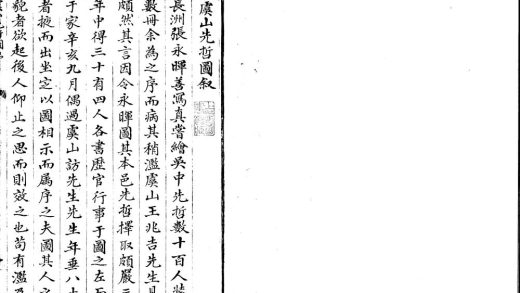 虞山先哲圖叙
長洲張永暉善寫真嘗繪吳中先哲數十百人裝
數冊余為之序而病其稍濫虞山王兆吉先生見
頗然其言因令永暉圖其本邑先哲擇取頗嚴三
年中得三十有四人各書歷官行事于圖之左
于家辛亥九月偶過虞山訪先生先生年垂八十
者掖而出坐定以圖相示而属序之夫圖其人之
貌者欲起後人仰止之思而則效之也苟有濫及